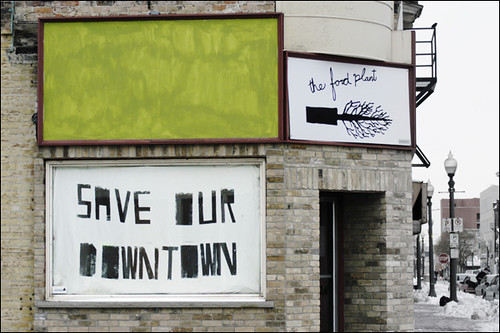 the food plant
SAVE OUR
DOWNTOWN